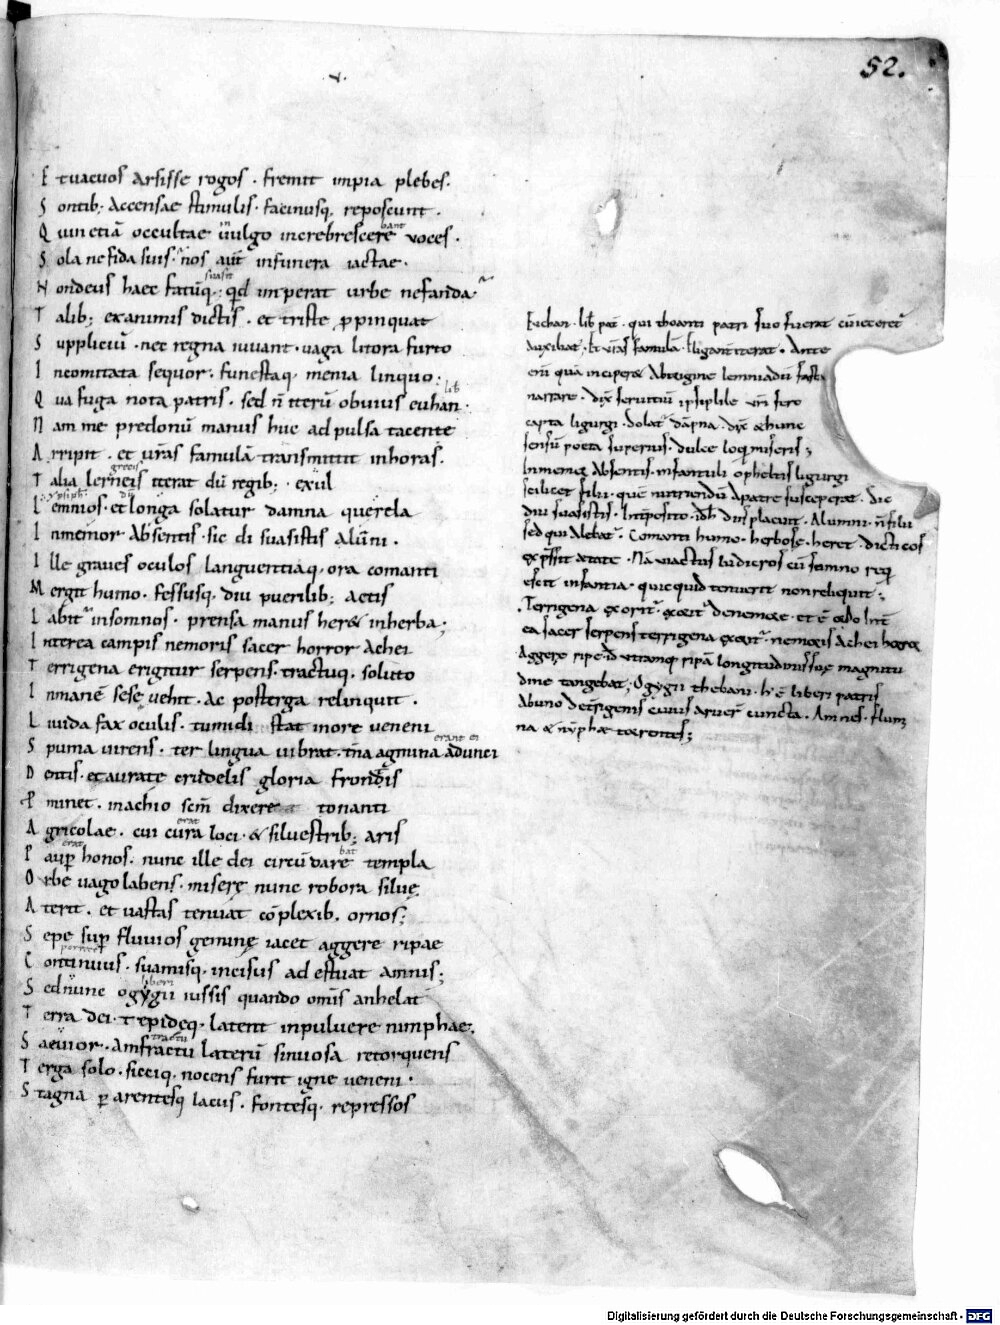 52.
E tuacuos arsisse rogos . fremit impia plebes.
S ontib; accensae stimulis . facinusq, reposcunt .
Q uin etiā occultae uulgo increbrescere uoces .
bant
S ola nefida suis . nos aut infunera iactae .
suasit
H ondeus haec fatūq; qd imperat urbe nefanda
T alib; exanimis dictis . et triste ppinquat
S uppliciū . nec regna iuuant . uaga litora furto
I ncomitata sequor . funestaq, menia linquo .
lib
Q ua fuga nota patris . sed n̄ iterū obuius euhan .
N am me predonū manus huc ad pulsa tacente
A rripit . et uras famulā transmittit inhoras .
grecis
T alia lerneis iterat dū regib; . exul
ysiph
L emnios . et longa solatur damna querela
I nmemor absentis . sic di suasistis alūni .
I lle graues oculos languentiaq, ora comanti
M ergit humo . fessusq, diu puerilib; actis
L abit insomnos . prensa manus her& inherba ;
I nterea campis nemoris sacer horror achei
T errigena erigitur serpens . tractuq, soluto
I nmane sese uehit . ac posterga relinquit .
L iuida fax oculis . tumidi stat more ueneni
erant ei
S puma uirens . ter lingua uibrat . t̄na agmina adunci
D entis . et auratę crudelis gloria frondis
P minet . inachio scm̄ dixere tonanti
erat
A gricolae . cui cura loci . & siluestrib; aris
erat
P aup honos . nunc ille dei circūdare templa
bat
O rbe uago labens . miserę nunc robora siluę
A terit . et uastas tenuat cōplexib, ornos ;
S epe sup fluuios geminę iacet aggere ripae
C ontinuus . suamisq, incisus ad estuat amnis ;
liberi
S ed nunc ogygii iussis quando omis anhelat
T erra dei . trepideq, latent inpuluere nimphae .
tractu
S aeuior . amfractu laterū sinuosa retorquens
T erga solo . sicciq, nocens furit igne ueneni .
S tagna p arentesq lacus . fontesq, repressos
Euhan . lib pat . qui thoanti patri suo fuerat
auxiliat . et uras famulā . iterat . Ante
em̄ quā inciper& aborigine lemniadū facta
narrare . dix seruitiū ipsiphile
capta ligurgi . dolat dāpna . dix & hunc
sensū poeta superius . dulce loq, miseris ;
Inmemor absentis . infantuli opheltis ligurgi
scilicet filii . quē nutriendū apatre susceperat . Sic
diu suasistis . Imposito . placuit . Alumni . n̄ filii
sed qui alebat . Comanti humo . herbose . heret . dicti eos
exp̄ssit aetate . Nā uiactus ludicros cū somno
esset infantia . quicquid tenuerit non reliquit ;
Terrigena
ea sacer serpens terrigena nemoris achei horror
Aggere ripe . id utramq ripā longitudinis suę magnitu
dine tangebat ; Ogygii thebani . h ē liberi patris
Abuno cuius aruer cuncta . Amnes . flum
na & nȳphae torrentes ;
Digitalisierung gefördert durch die Deutsche Forschungsgemeinschaft - DFG